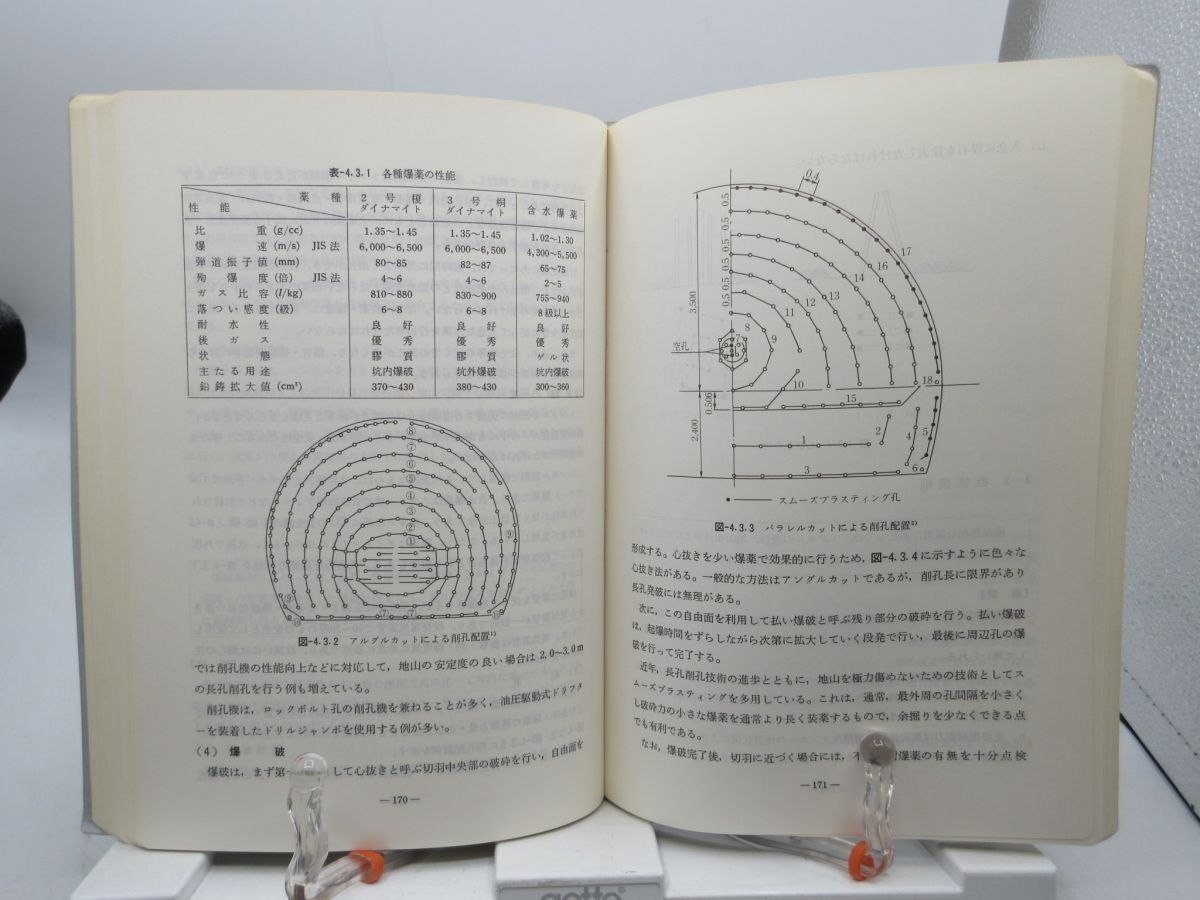 表-4.3.1 各種爆薬の性能
薬種
性能
2号榎ダイナマイト
3号桐ダイナマイト
含水爆薬
比重(g/cc) 1.35〜1.45 1.35〜1.45 1.02〜1.30
爆速(m/s) JIS法 6,000〜6,500 6,000〜6,500 4,300〜5,500
弾道振子値(mm) 80〜85 82〜87 65〜75
殉爆度(倍) JIS法 4〜6 4〜6 2〜5
ガス比容(l/kg) 810〜880 830〜900 755〜940
落つい感度(級) 6〜8 6〜8 8級以上
耐水性 良好 良好 良好
後ガス 優秀 優秀 優秀
状態 膠質 膠質 ゲル状
主たる用途 坑内爆破 坑外爆破 坑内爆破
鉛鋳拡大値(cm³) 370〜430 380〜430 300〜360
⑧
⑦
⑥
⑤
④
③
②
①
⑨
⑨
⑩
⑦
⑦
⑩
図-4.3.2 アルグルカットによる削孔配置¹⁾
では削孔機の性能向上などに対応して，地山の安定度の良い場合は2.0〜3.0m
の長孔削孔を行う例も増えている。
削孔機は，ロックボルト孔の削孔機を兼ねることが多く，油圧駆動式ドリフタ
ーを装着したドリルジャンボを使用する例が多い。
(4) 爆破
爆破は，まず第 して心抜きと呼ぶ切羽中央部の破砕を行い，自由面を
―170―
0.4
0.5
0.5
0.5
0.5
0.5
3,500
空孔
0.506
2,400
17
16
14
13
12
11
8
7
9
10
18
15
2
1
4
5
3
6
スムーズブラスティング孔
図-4.3.3 パラレルカットによる削孔配置²⁾
形成する。心抜きを少い爆薬で効果的に行うため，図-4.3.4に示すように色々な
心抜き法がある。一般的な方法はアングルカットであるが，削孔長に限界があり
長孔発破には無理がある。
次に，この自由面を利用して払い爆破と呼ぶ残り部分の破砕を行う。払い爆破
は，起爆時間をずらしながら次第に拡大していく段発で行い，最後に周辺孔の爆
破を行って完了する。
近年，長孔削孔技術の進歩とともに，地山を極力傷めないための技術としてス
ムーズブラスティングを多用している。これは，通常，最外周の孔間隔を小さく
し破砕力の小さな爆薬を通常より長く装薬するもので，余掘りを少なくできる点
でも有利である。
なお，爆破完了後，切羽に近づく場合には，不 爆薬の有無を十分点検
―171―